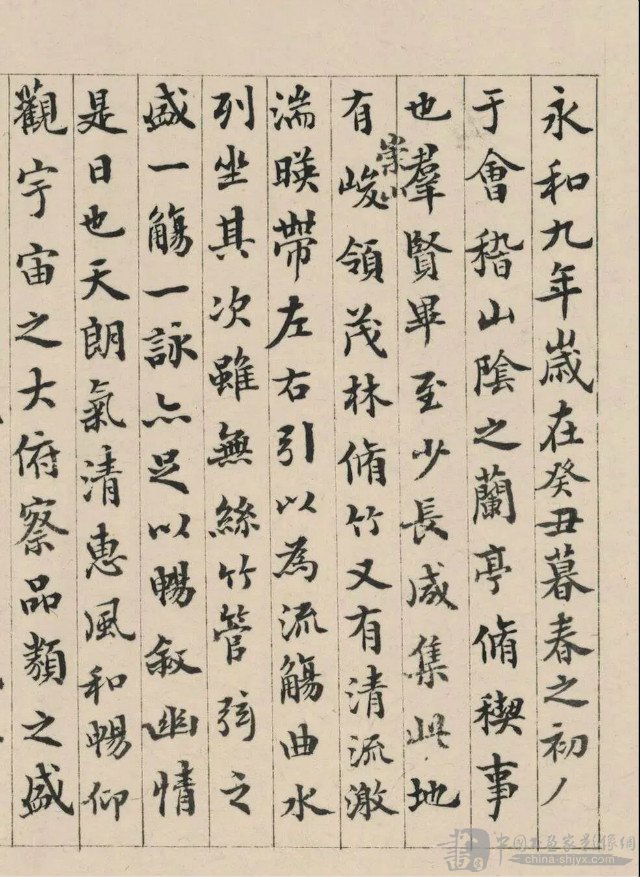 永和九年歲在癸丑暮春之初
于會稽山陰之蘭亭脩稧事
也羣賢畢至少長咸集此地
有崇山峻領茂林脩竹又有清流激
湍暎帶左右引以為流觴曲水
列坐其次雖無絲竹管弦之
盛一觴一詠亦足以暢敘幽情
是日也天朗氣清惠風和暢仰
觀宇宙之大俯察品類之盛
中国书画家影像網
china-shjyx.com